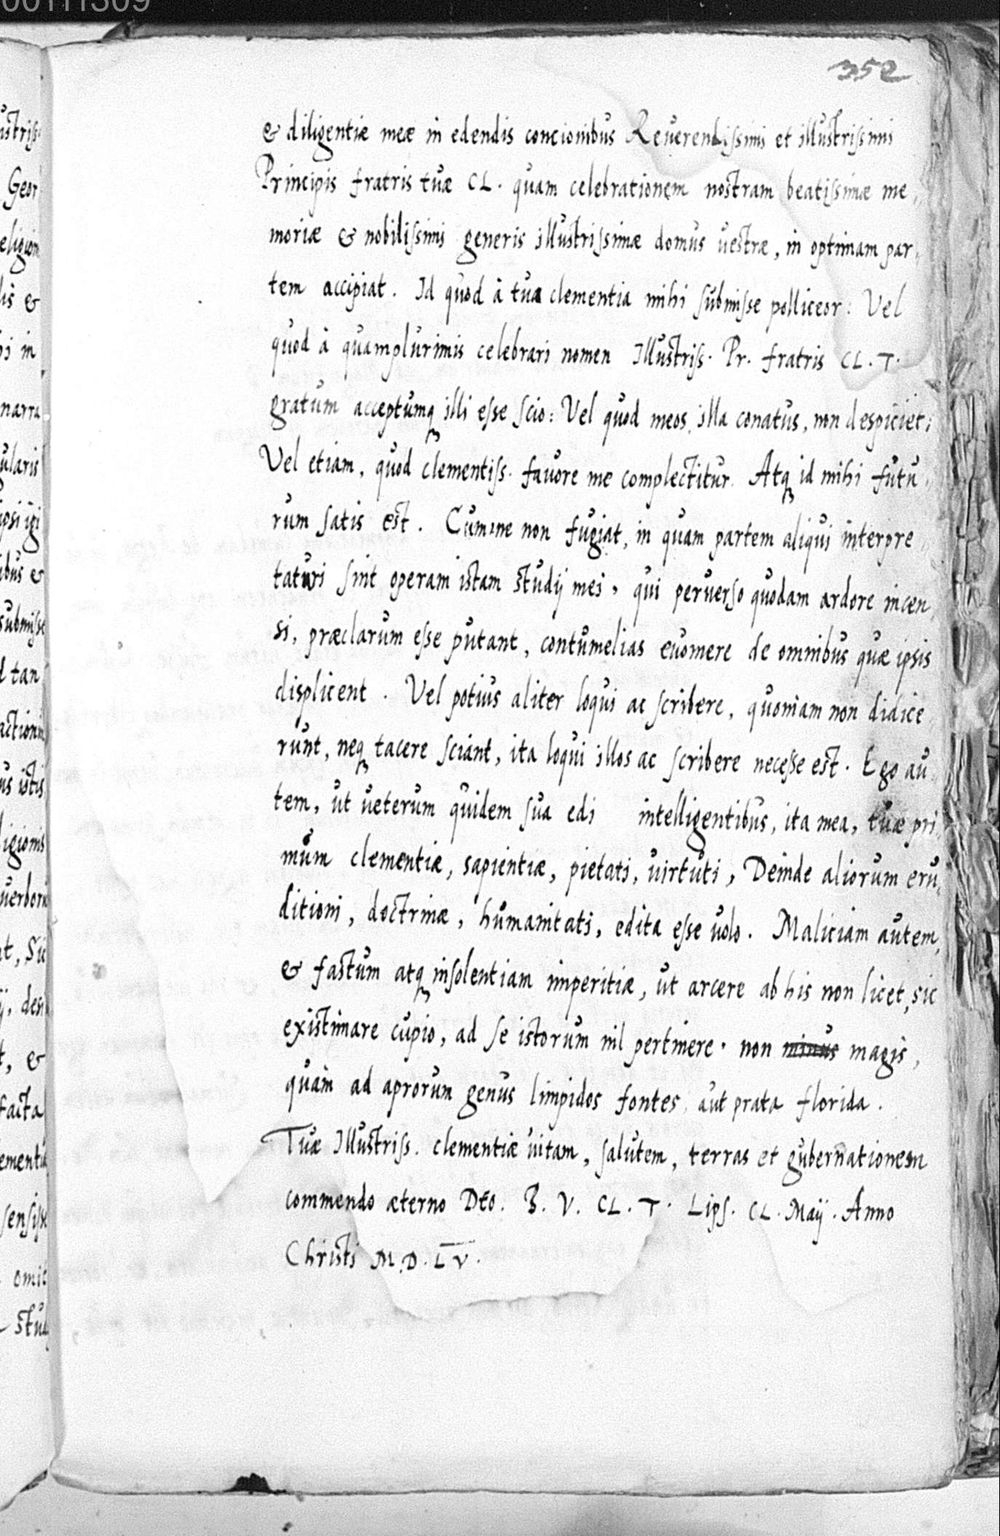 00111309
352
& diligentiæ meæ in edendis concionibus Reuerendissimi et illustrissimi
Principis fratris tuæ CL. quam celebrationem nostram beatissimæ me,
moriæ & nobilissimi generis illustrissimæ domus uestræ, in optimam par,
tem accipiat. Id quod à tua clementia mihi submisse polliceor: Vel
quod à quamplurimis celebrari nomen Illustriss. Pr. fratris CL. T.
gratum acceptumq illi esse scio: Vel quod meos illa conatus, non despiciet:
Vel etiam, quod clementiss. fauore me complectitur. Atq id mihi futu,
rum satis est. Cum me non fugiat, in quam partem aliqui interpre,
taturi sint operam istam studij mei, qui peruerso quodam ardore incen,
si, præclarum esse putant, contumelias euomere de omnibus quæ ipsis
displicent. Vel potius aliter loqui ac scribere, quoniam non didice,
runt, neq tacere sciant, ita loqui illos ac scribere necesse est. Ego au,
tem, ut ueterum quidem sua edi intelligentibus, ita mea, tuæ pri
mum clementiæ, sapientiæ, pietati, uirtuti, Deinde aliorum eru,
ditioni, doctrinæ, humanitati, edita esse uolo. Maliciam autem,
& fastum atq insolentiam imperitiæ, ut arcere ab his non licet, sic
existimare cupio, ad se istorum nil pertinere. non minus magis,
quam ad aprorun genus limpidos fontes, aut prata florida.
Tuæ Illustriss. clementiæ uitam, salutem, terras et gubernationem
commendo æterno Deo. B. V. CL. T. Lips. CL. Maij. Anno
Christi M.D.LV.